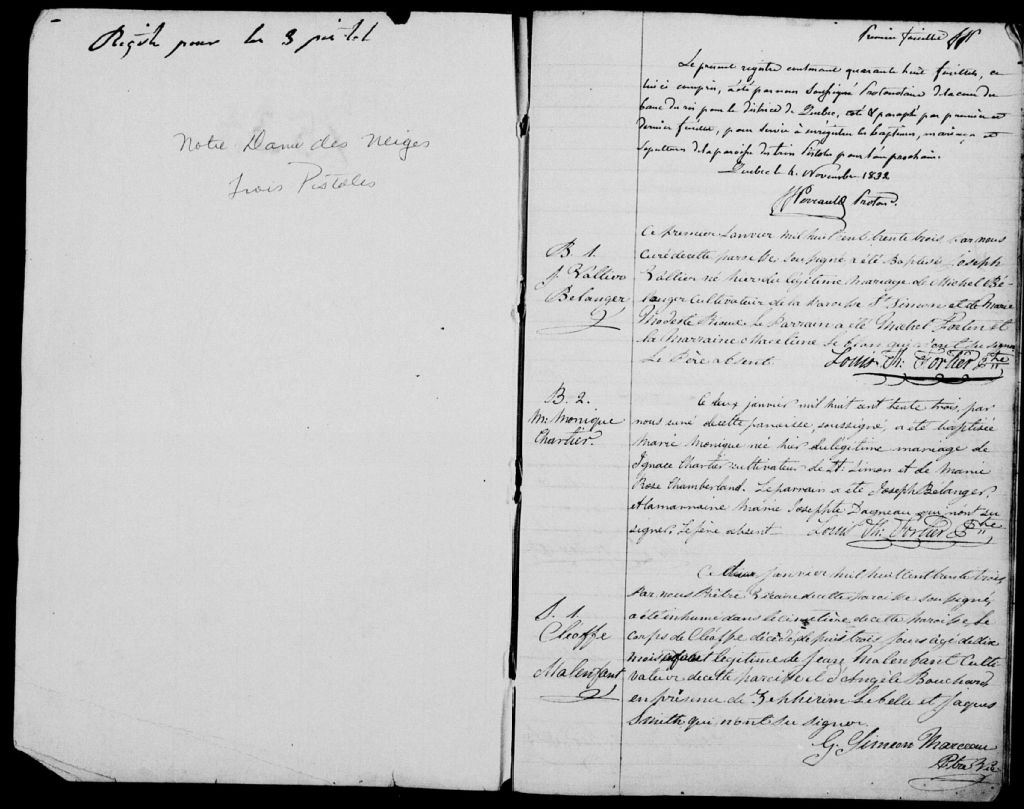 Registre pour les 3 pistol
Notre Dame des Neiges
Trois Pistoles
Premier feuillet
Le present registre contenant quarante huit feuillets, ce
lui ci compris, a été par nous soussigné Protonotaire de la cour du
banc du roi pour le district de Québec, coté & paraphé par premier et
dernier feuillet, pour servir à enregistrer les baptemes, mariages et
sepultures de la paroisse des trois Pistoles pour l'an prochain.
Quebec le 4 Novembre 1832
Perrault Proton.
B. 1.
J. Vallier
Belanger
Ce premier Janvier mil huit cent trente trois par nous
Curé de cette paroisse soussigné a été Baptisé Joseph
Vallier né hier du légitime Mariage de Michel Bé-
langer Cultivateur de la Paroisse St Simon et de Marie
Modeste Rioux. Le Parrain a été Michel Forlin et
la Marraine Marcelline qui n'ont su signer
Le Père absent. Louis Th: Fortier Ptre
B. 2.
M: Monique
Chartier
Ce deux janvier mil huit cent trente trois, par
nous curé de cette paroisse, soussigné, a été baptisée
Marie Monique née hier du légitime mariage de
Ignace Chartier cultivateur de St. Simon et de Marie
Rose Chamberland. Le parrain a été Joseph Bélanger,
et la marraine Marie Josephte Dagneau qui n'ont su
signer. Le père absent Louis Th: Fortier Ptre
S. 1.
Cléoffe
Malenfant
Ce deux Janvier mil huit cent trente trois
Par nous Prêtre Vicaire de cette paroisse soussigné,
a été inhumé dans le cimetière de cette paroisse, le
corps de Cléoffe décédé depuis trois jours agé de dix
mois enfant légitime de Jean Malenfant Culti-
vateur de cette paroisse et d'Angèle Bouchard
en présence de Zepherin Lebelle et Jaques
Smith qui n'ont su signer.
G. Simeon Marceau
Ptre Vic